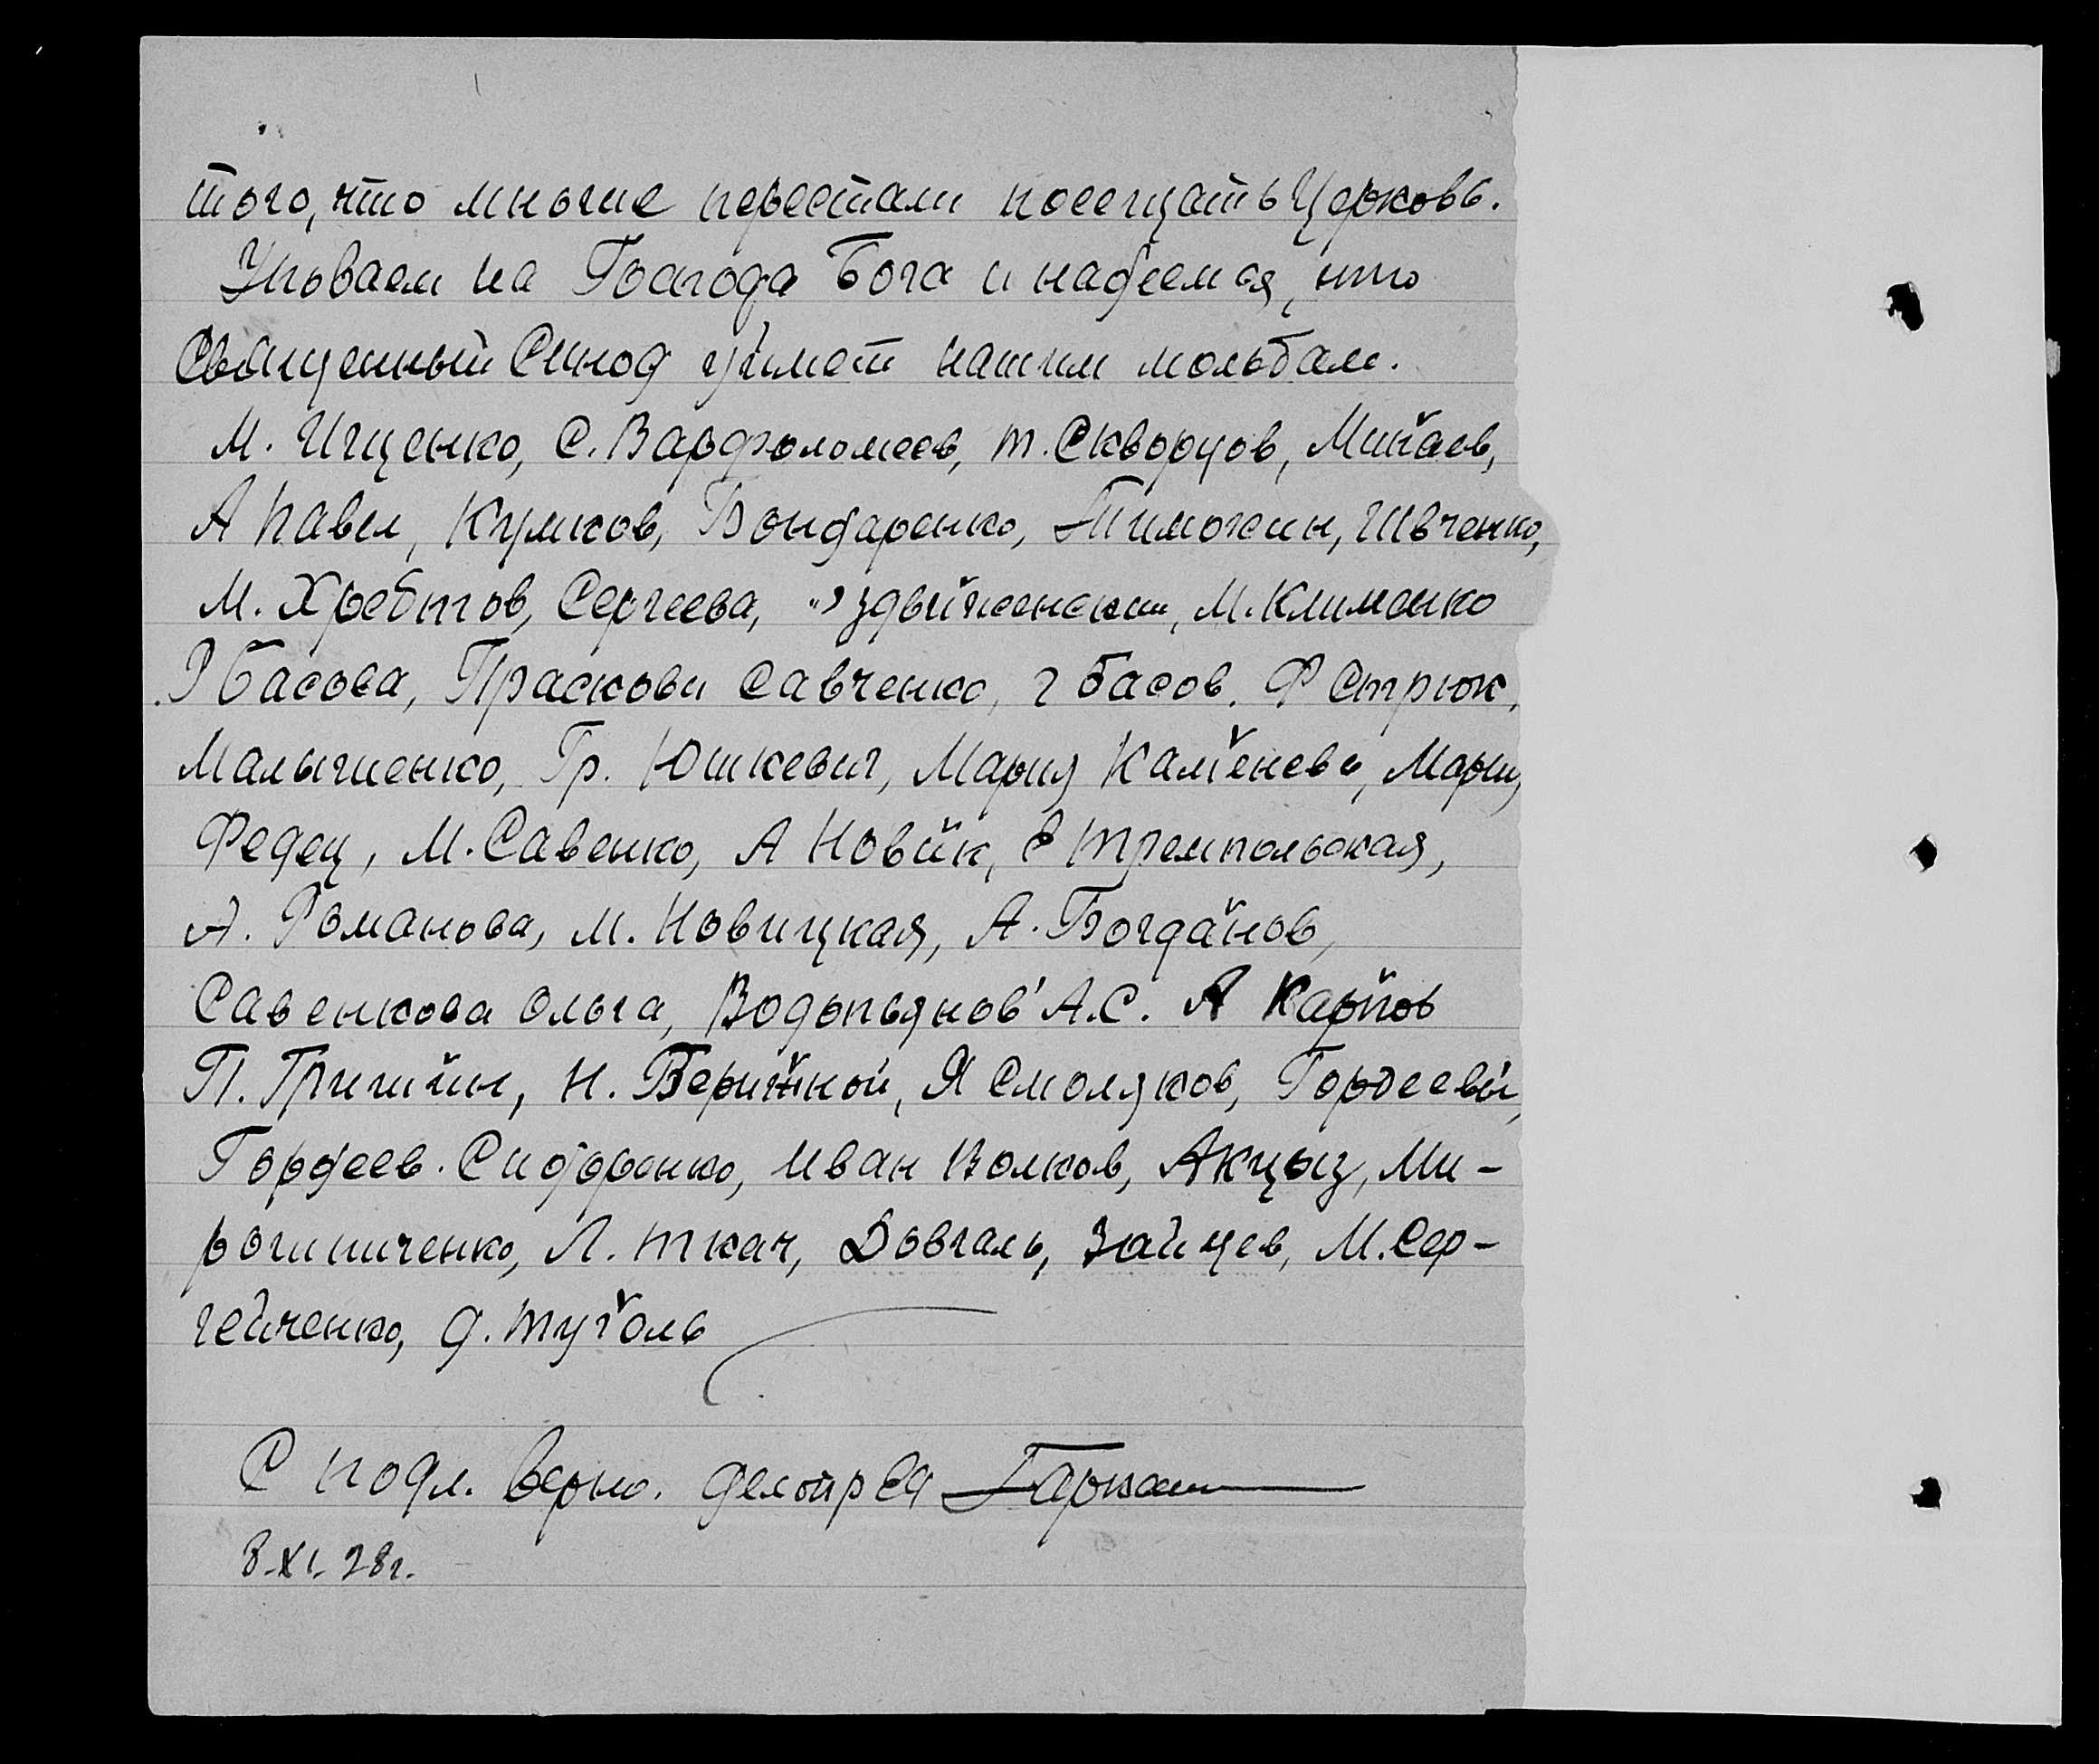 того, что многие перестали посещать Церковь.
Уповаем на Господа Бога и надеемся, что
Священный Синод внимет нашим мольбам.
М. Ищенко, С. Варфоломеев, Т. Скворцов, Минаев,
А Павел, Кумков, Бондаренко, Тимохин, Швченко,
М. Хребтов, Сергеева, М. Клименко
Р Басова, Праскови Савченко, г Басов. Ф Стрюк,
Малышенко, Гр. Юшкевич, Мария Каменева, Мария
Федец, М. Савенко, А Новик, Е Тремпольская,
А. Романова, М. Новицкая, А. Богданов,
Савенкова Ольга, Водопьянов А.С. А Карпов
П. Гришин, Н. Верижной, Я Смоляков, Гордеевы,
Гордеев. Сидоренко, Иван Волков, Акцыз, Ми-
рошниченко, Л. Ткач, Довгаль, Зайцев, М. Сер-
гейченко, Д. Туголь
С подл. верно.
8.XI.28г.